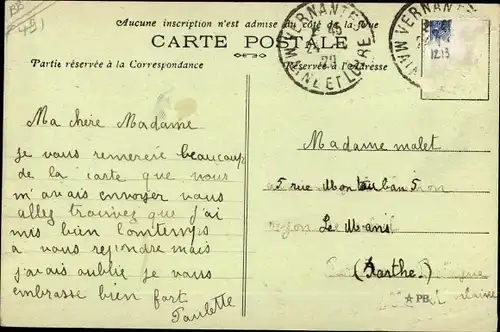 Aucune inscription n'est admise du côté de la Vue
CARTE POSTALE
Partie réservée à la Correspondance
Réservée à l'Adresse
VERNANTES
MAINE ET LOIRE
VERNANTES
Ma chère Madame
je vous remercie beaucoup
de la carte que vous
m'avais envoyer vous
allez trouvez que j'ai
mis bien lomtemps
a vous repondre mais
j'avais oublié je vous
embrasse bien fort
Paulette
Madame malet
5 rue Montauban 5
Le Mans
(Sarthe)
PB